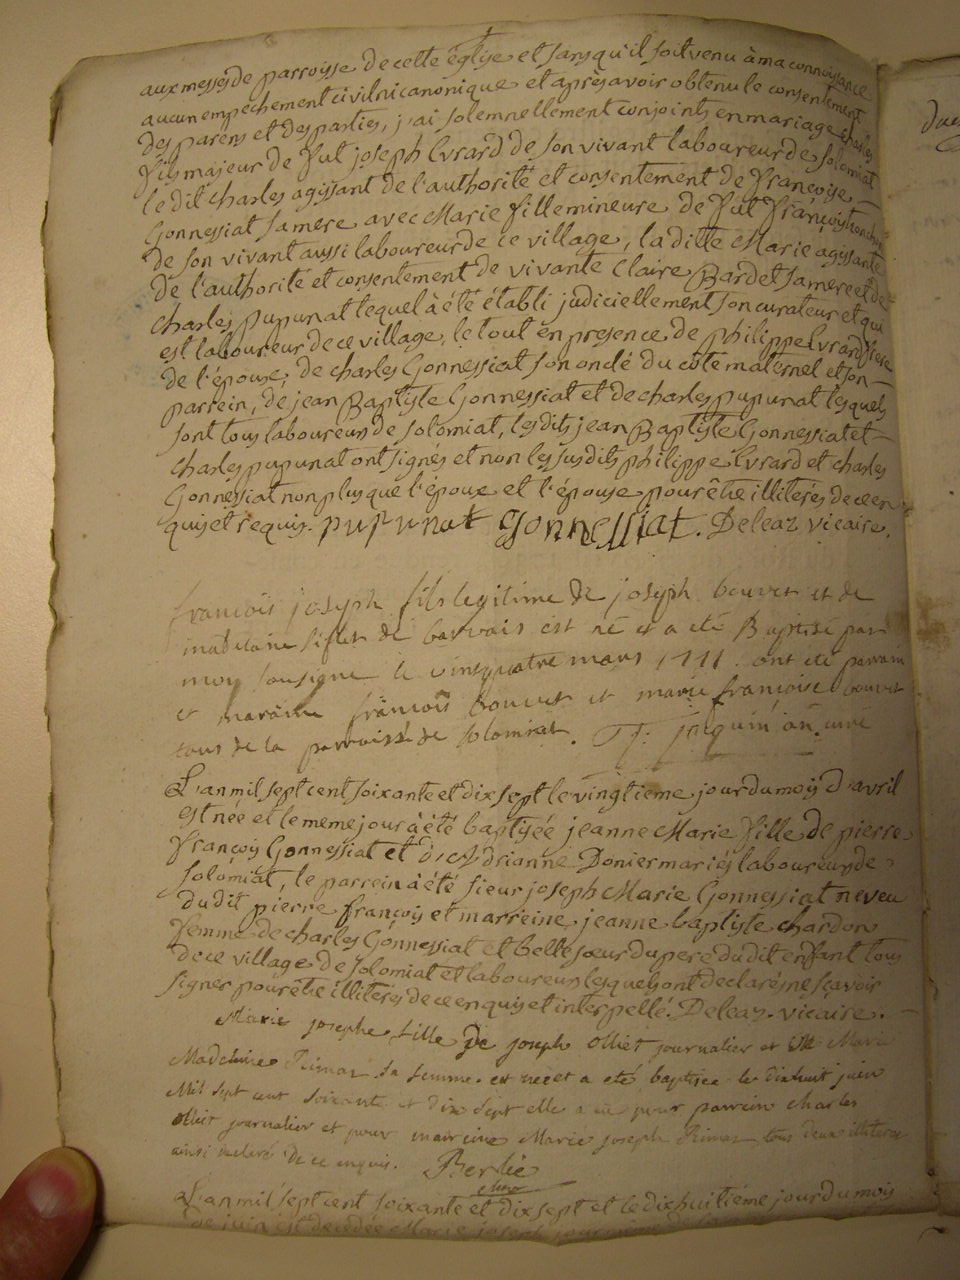 aux messes de parroisse de cette église et sans qu'il soit venu à ma connoissance
aucun empêchement civil ni canonique et après avoir obtenu le consentement
des parens et des parties, j'ai solemnellement conjoints en mariage charles
fils majeur de fut joseph Evrard de son vivant laboureur de solomiat
le dit charles agissant de l'authorité et consentement de françoise
Gonnessiat sa mere avec Marie fille mineure de fut françois
de son vivant aussi laboureur de ce village, la ditte Marie agissante
de l'authorité et consentement de vivante Claire Bardet sa mere et de
charles pupunat lequel à été établi judiciellement son curateur et qui
est laboureur de ce village, le tout en presence de philippe Evrard frere
de l'épouse, de charles Gonnessiat son oncle du côté maternel et son
parrein, de jean Baptiste Gonnessiat et de charles pupunat lesquels
sont tous laboureurs de solomiat, les dits jean Baptiste Gonnessiat et
charles pupunat ont signes et non les susdits philippe Evrard et charles
Gonnessiat non plus que l'époux et l'épouse pour être illiterés de ce en
quis et requis. pupunat Gonnessiat. Deleaz vicaire.
francois joseph fils legitime de joseph bouvet et de
de est né et a eté Baptisé par
moy sousigne le vintquatre mars 1777. ont été parrain
et maraine francois bouvet et marie francoise bouvet
tous de la parroisse de solomiat. curé
L'an mil sept cent soixante et dix sept le vingtieme jour du mois d'avril
est née et le meme jour à été baptisée jeanne Marie fille de pierre
françois Gonnessiat et d'Adrianne Donier mariés laboureurs de
solomiat, le parrein à été sieur joseph Marie Gonnessiat neveu
du dit pierre françois et marreine jeanne baptiste chardon
femme de charles Gonnessiat et belle sœur du pere du dit enfant tous
de ce village de solomiat et laboureurs lesquels ont declarés ne sçavoir
signer pour être illiterés de ce enquis et interpellé. Deleaz. vicaire.
Marie josephe fille de joseph Olliet journalier et Marie
Madelaine sa femme. est neé et a eté baptisee le dixhuit juin
Mil sept cent soixante et dix sept elle a eu pour parrein charles
olliet journalier et pour maireine Marie joseph tous deux illiteres
ainsi declaré de ce enquis. Berlie
L'an mil sept cent soixante et dix sept et le dixhuitiéme jour du mois
de juin est decedée Marie joseph